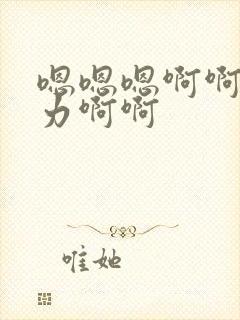 嗯嗯嗯啊啊
力啊啊
唯她